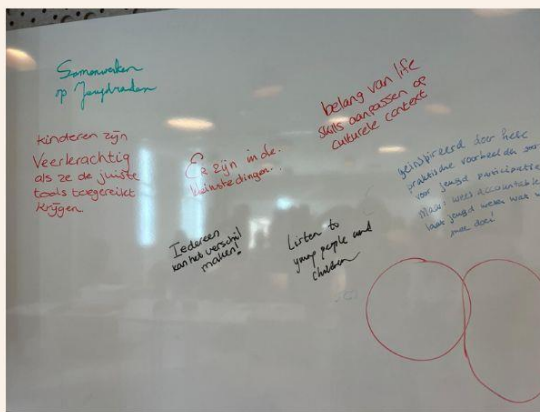 Samenwerken
op Jeugdraden
kinderen zijn
Veerkrachtig
als ze de juiste
tools toegereikt
krijgen.
Er zijn in de
kleinste dingen...
belang van life
skills aanpassen op
culturele context
geïnspireerd door hele
praktische voorbeelden
voor jeugd participatie
maar! wees accountable
laat jeugd weten wat
mee doet
Iedereen
kan het verschil
maken!
Listen to
young people and
children